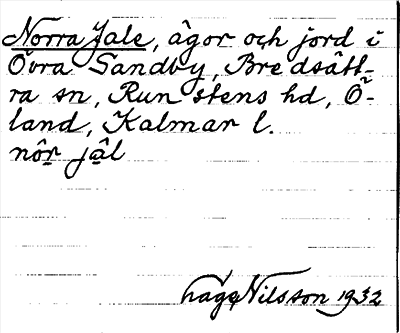 Norra Jale, ägor och jord i
Övra Sandby, Bredsätt-
ra sn, Runstens hd, Ö-
land, Kalmar l.
nôr jâl
Hage Nilsson 1932